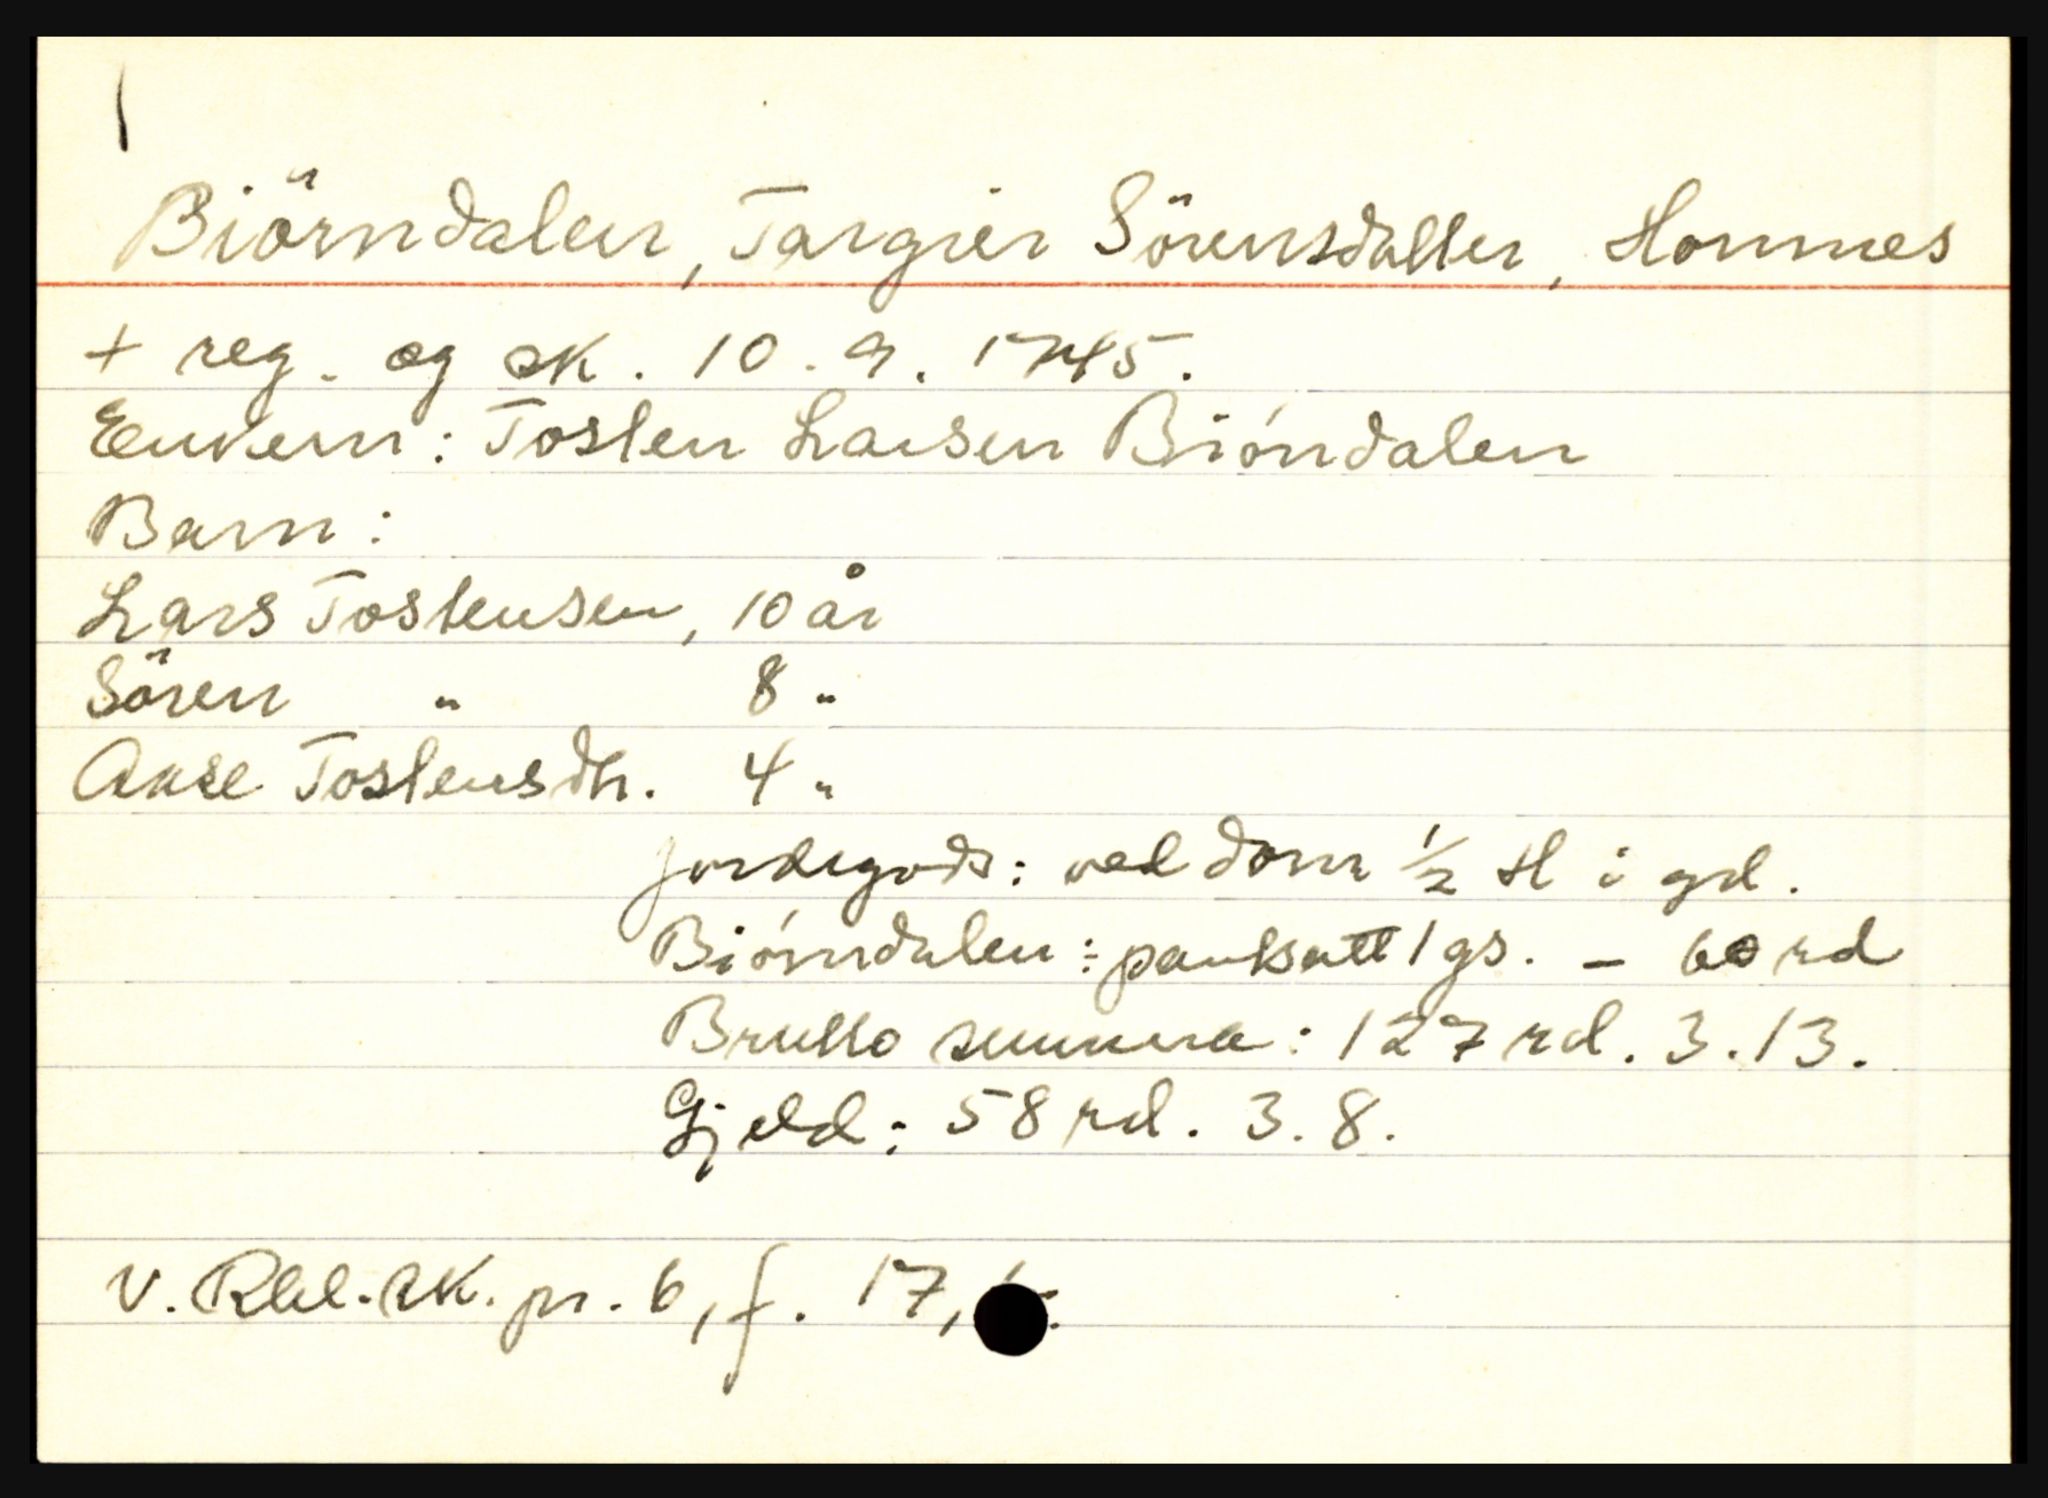 Biörndalen, Targier Sörensdatter, Hommes
+ reg. og sk. 10.9.1745.
Enkem: Tosten Larsen Biórndalen
Barn:
Lars Tostensen, 10 år
Sören " 8 "
Anse Tostensdtr. 4 "
Jordegods: ved dom 1/2 H i gd.
Biórndalen: pantsatt 1 gs. - 60 rd
Brutto summa: 127 rd. 3.13.
Gjeld: 58 rd. 3.8.
V. Rbl. sk. pr. 6, f. 17,